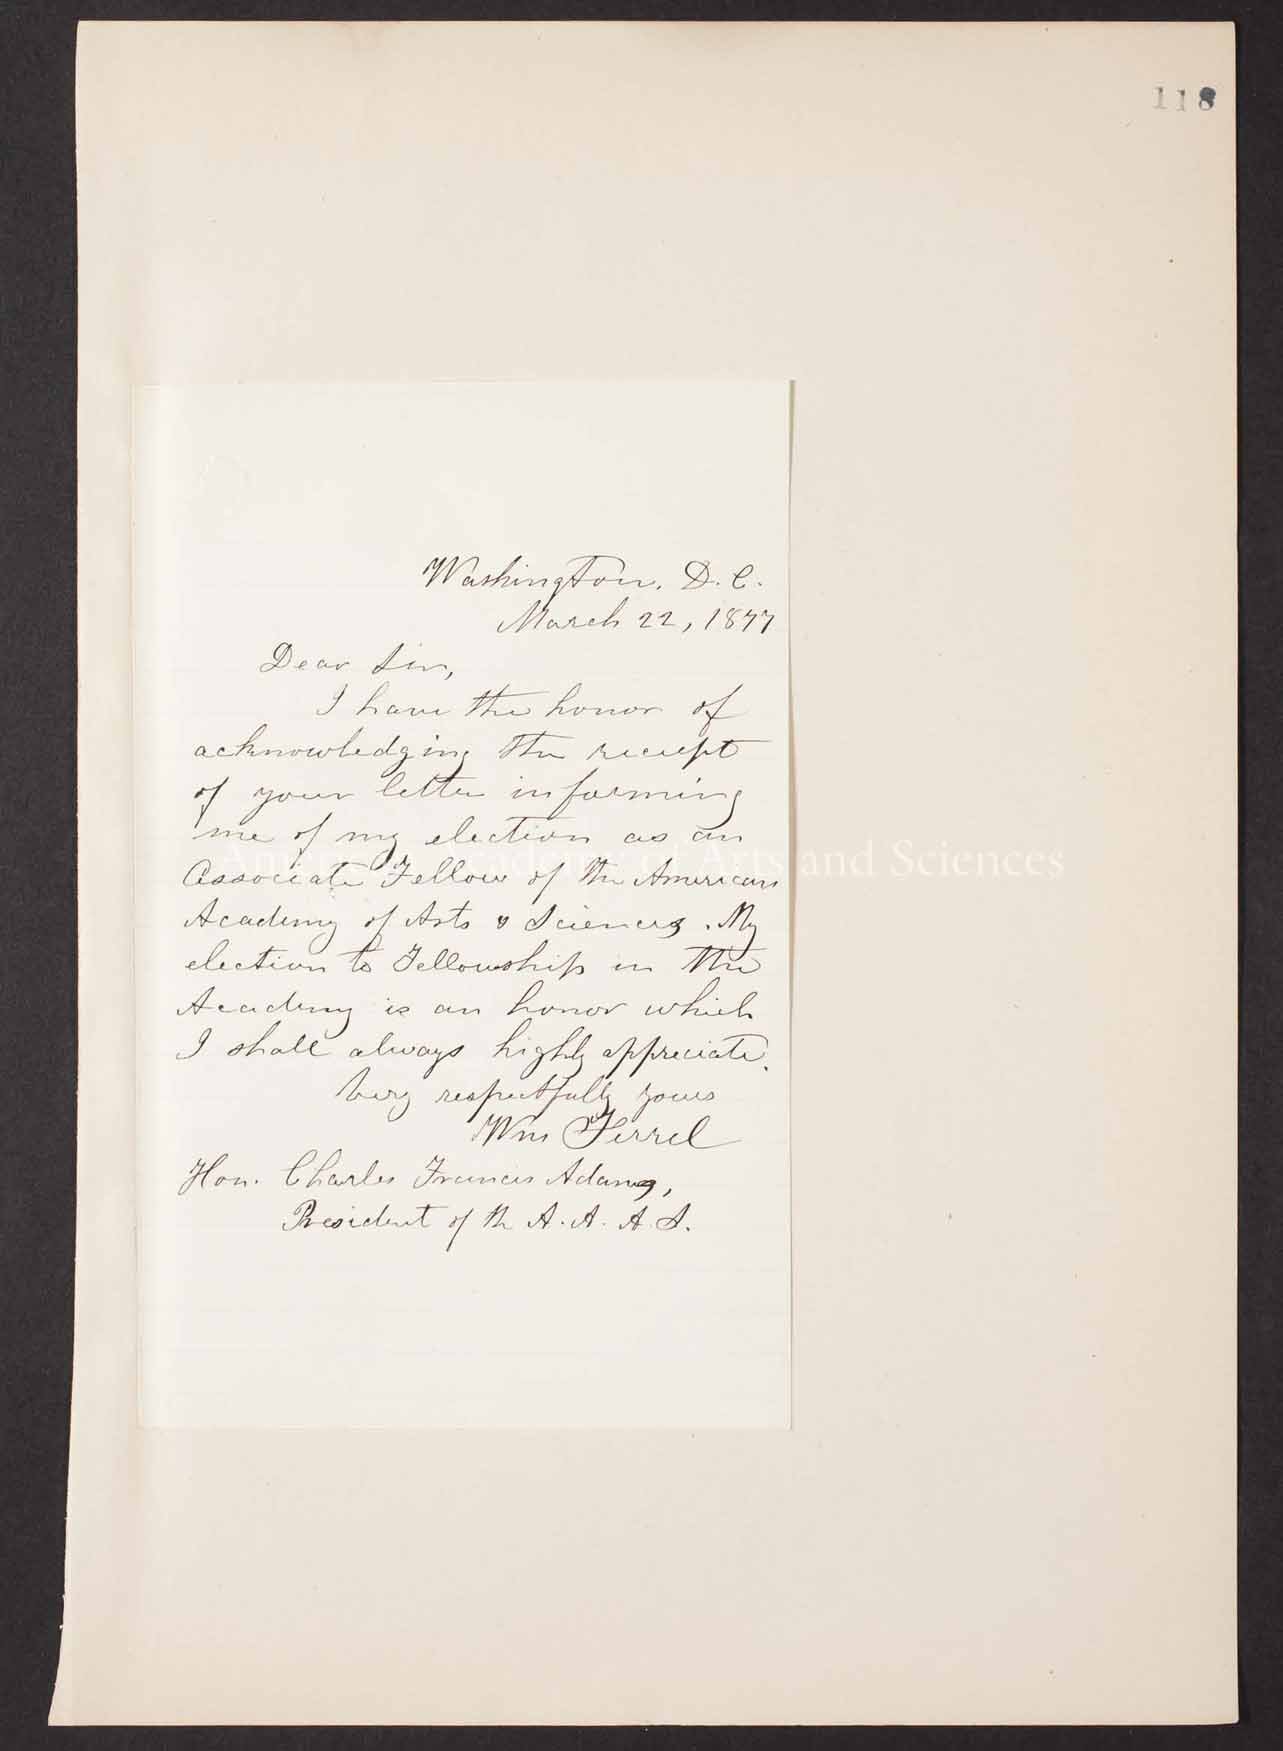 118
Washington, D.C.
March 22, 1877
Dear Sir,
I have the honor of
acknowledging the receipt
of your letter informing
me of my election as an
Associate Fellow of the American
Academy of Arts & Sciences. My
election to Fellowship in the
Academy is an honor which
I shall always highly appreciate.
Very respectfully yours
Wm Ferrel
Hon. Charles Francis Adams,
President of th A. A. A. S.
American Academy of Arts and Sciences